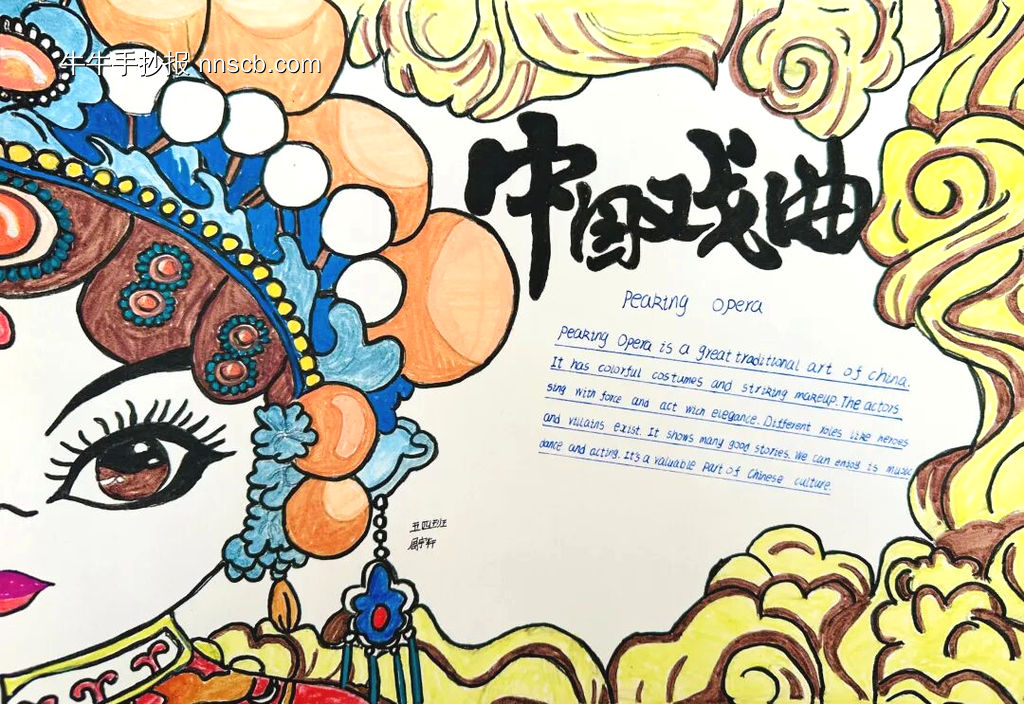 牛牛手抄报 nnscb.com
中国戏曲
Peaking Opera
Peaking Opera is a great traditional art of china.
It has colorful costumes and striking makeup. The actors
sing with force and act with elegance. Different roles like heroes
and villains exist. It shows many good stories. We can enjoy is music
dance and acting. It's a valuable part of Chinese culture.
五四班